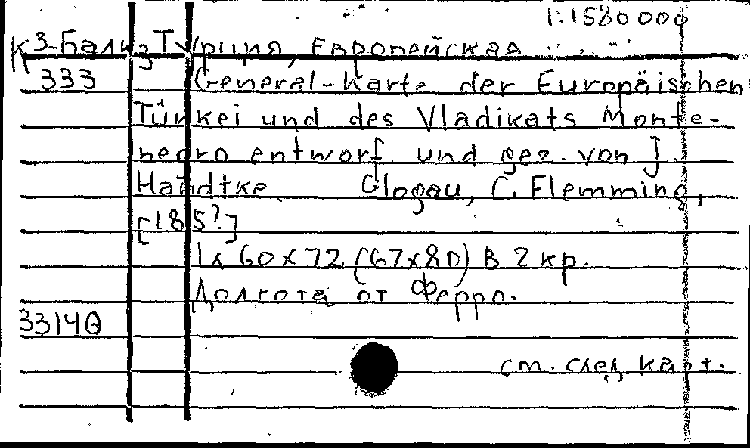 1:1580000
К3-Балк/3 Турция, Европейская
333 General-Karte der Europäischen
Türkei und des Vladikats Monte-
negro entworf. und gez. von J.
Handtke. Glogau, C. Flemming,
[185?]
1л 60х72 (67х80) в 2 кр.
Долгота от Ферро.
33140
см. след. карт.